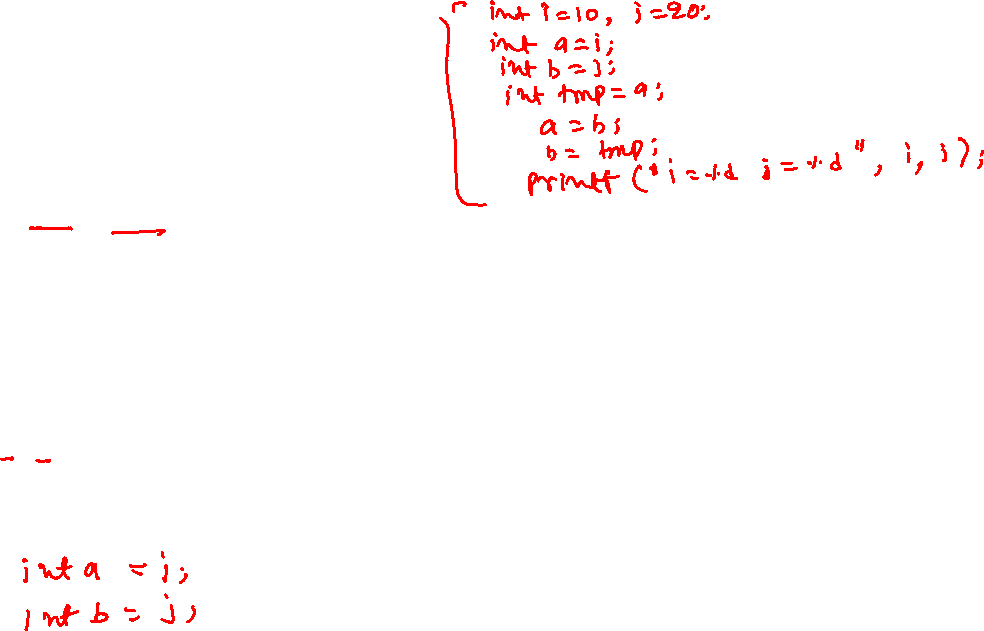 int i=10, j=20;
int a=i;
int b=j;
int tmp=a;
a=b;
b= tmp;
printf ("i=%d j=%d", i, j);
int a = i;
int b = j;